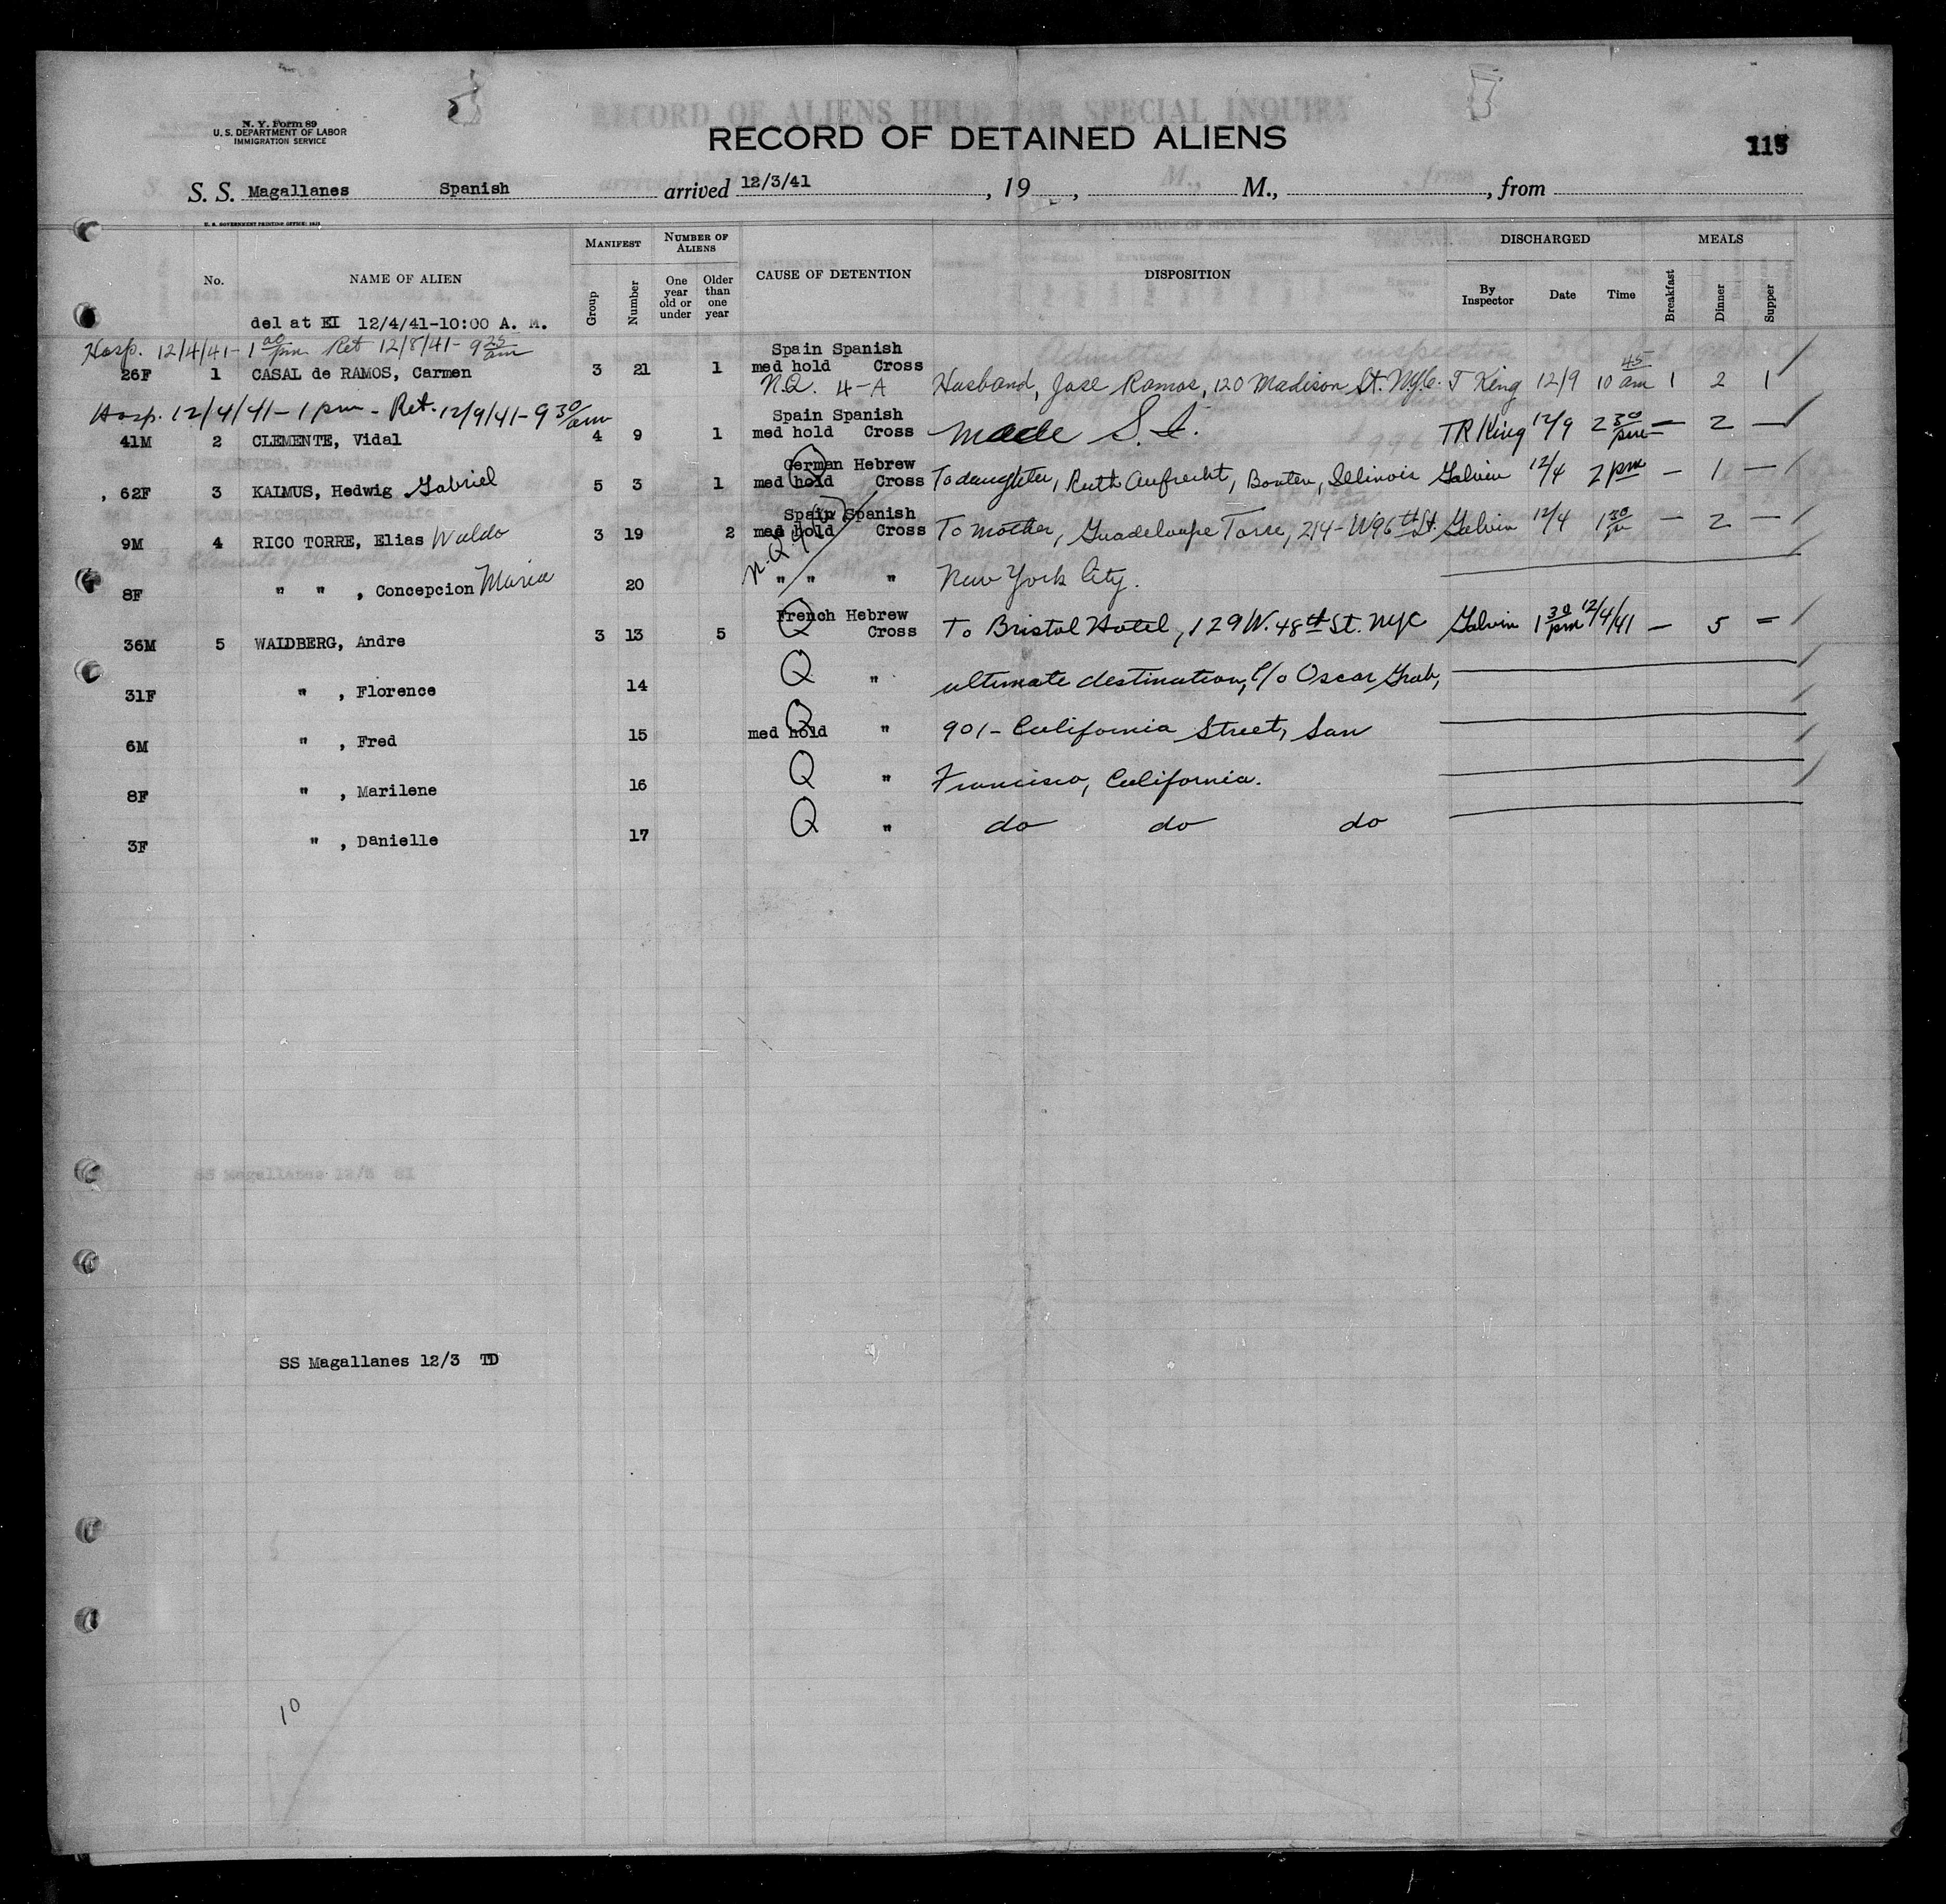 N. Y. Form 89
U. S. DEPARTMENT OF LABOR
IMMIGRATION SERVICE
RECORD OF ALIENS HELD FOR SPECIAL INQUIRY
RECORD OF DETAINED ALIENS
115
S. S. Magallanes Spanish arrived 12/3/41, 19, M., from
U. S. GOVERNMENT PRINTING OFFICE:
No. NAME OF ALIEN MANIFEST Group Number NUMBER OF ALIENS One year old or under Older than one year CAUSE OF DETENTION DISPOSITION DISCHARGED By Inspector Date Time MEALS Breakfast Dinner Supper
del at EI 12/4/41-10:00 A. M.
Hosp. 12/4/41- 1 00 pm Ret 12/8/41- 9 25 am
Spain Spanish
26F 1 CASAL de RAMOS, Carmen 3 21 1 med hold Cross
N.Q. 4-A Husband, Jose Ramos, 120 Madison St. NYC. J King 12/9 10 45 am 1 2 1
Hosp. 12/4/41- 1 pm - Ret. 12/9/41- 9 30 am
Spain Spanish
41M 2 CLEMENTE, Vidal 4 9 1 med hold Cross made S. I. TR King 12/9 2 30 pm — 2 —
German Hebrew
62F 3 KAIMUS, Hedwig Gabriel 5 3 1 med hold Cross Q To daughter, Ruth Aufrecht, Illinois Galvin 12/4 2 pm — 1 —
Spain Spanish
9M 4 RICO TORRE, Elias Waldo 3 19 2 med hold Cross To mother, Guadeloupe Torre, 214-W96th St. Galvin 12/4 1 30 — 2 —
N.Q.
8F " " , Concepcion Maria 20 " " " New York City.
French Hebrew
36M 5 WAIDBERG, Andre 3 13 5 Q Cross To Bristol Hotel, 129 W. 48th St. NYC Galvin 1 30 pm 12/4/41 — 5 —
31F " , Florence 14 Q " ultimate destination, c/o Oscar Grab,
6M " , Fred 15 med hold Q " 901- California Street, San
8F " , Marilene 16 Q " Francisco, California.
3F " , Danielle 17 Q " do do do
SS Magallanes 12/3 SI
SS Magallanes 12/3 TD
10